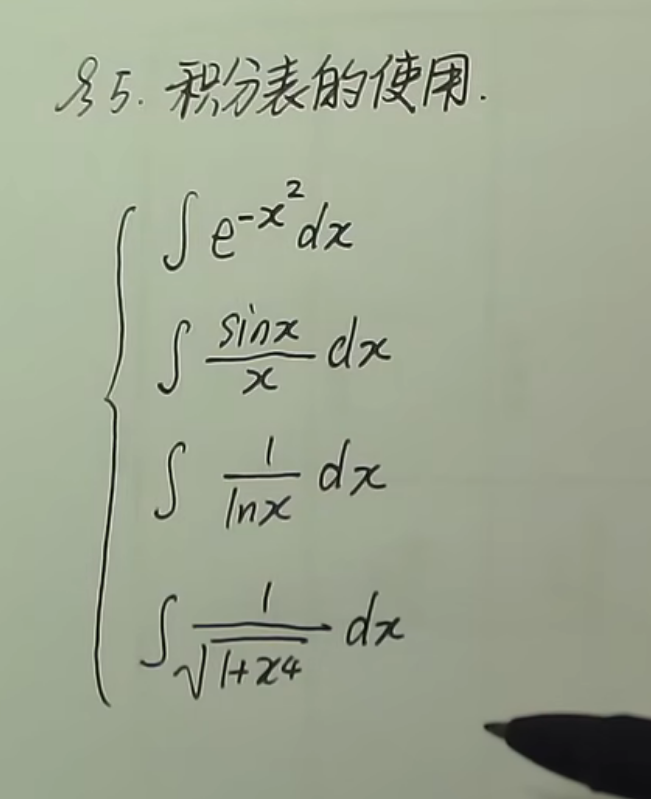 §5. 积分表的使用.
∫ e^{-x^2} dx
∫ \frac{sinx}{x} dx
∫ \frac{1}{lnx} dx
∫ \frac{1}{\sqrt{1+x^4}} dx